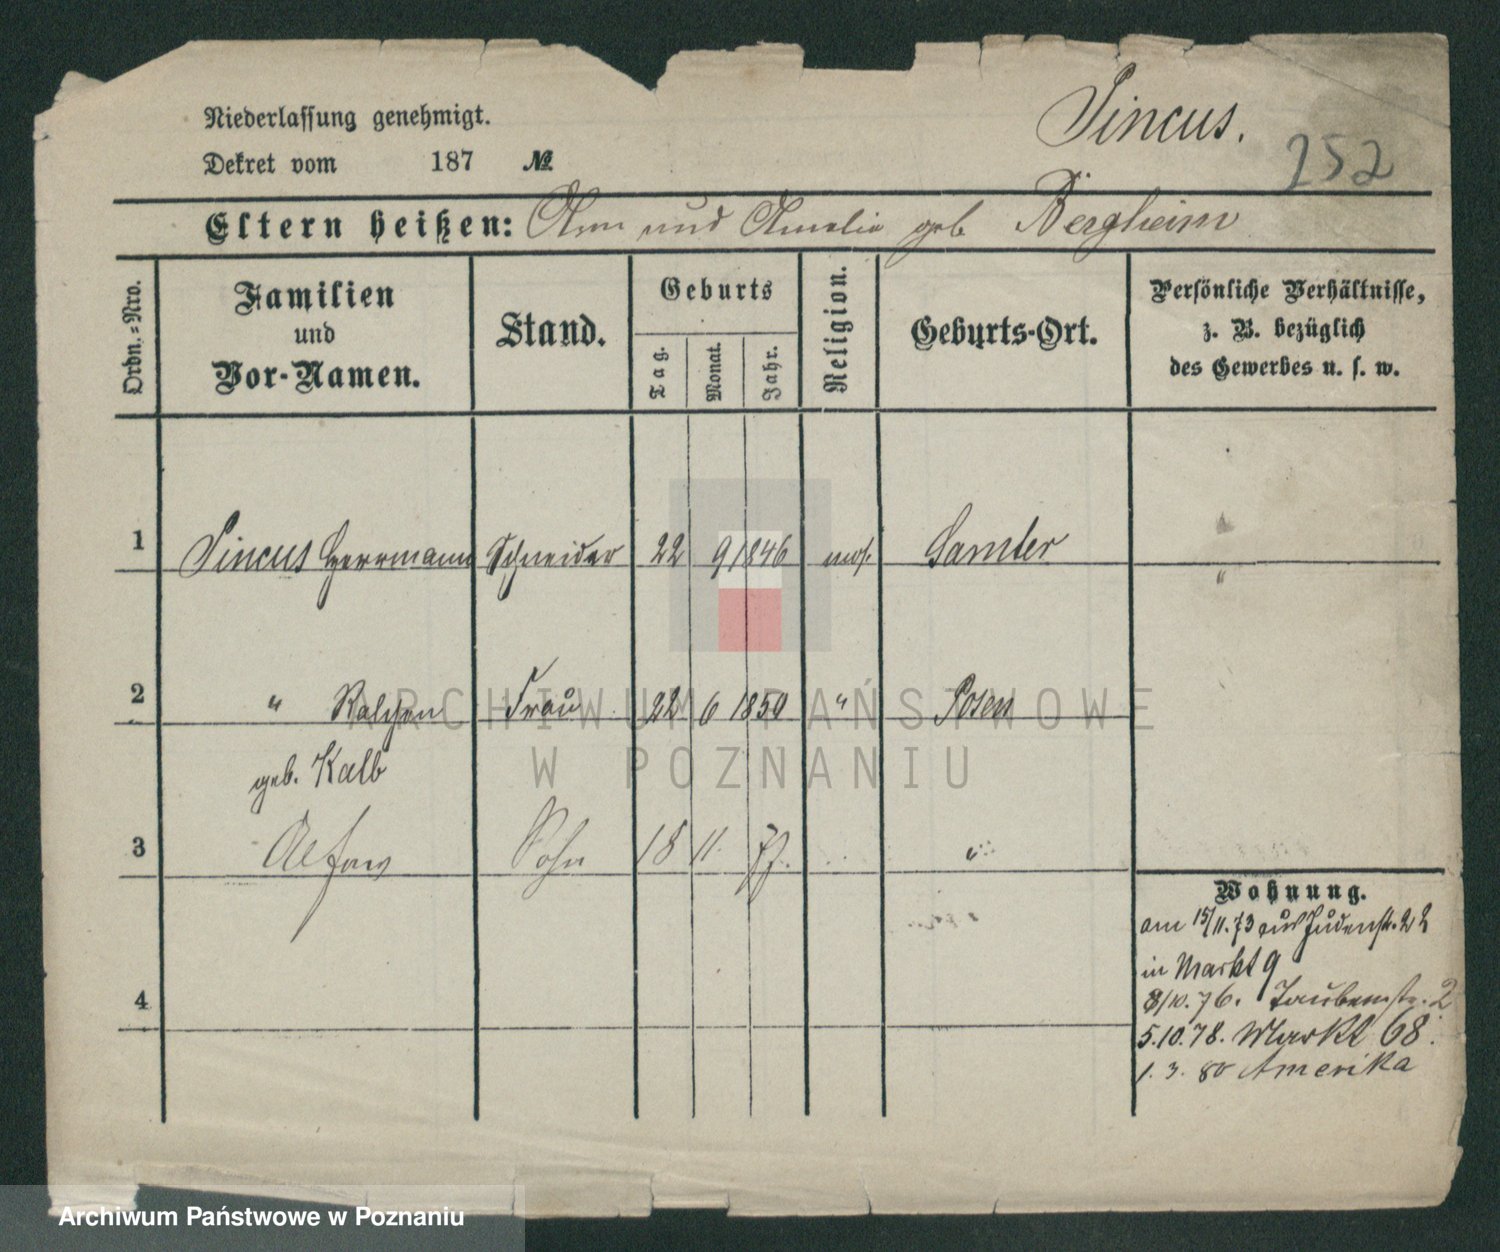 Niederlassung genehmigt.
Dekret vom 187 №
Pincus.
252
Eltern heißen: und Amalie geb Bergheim
Ordn.=Nro.
Familien
und
Vor-Namen.
Stand.
Geburts
Tag.
Monat.
Jahr.
Religion.
Geburts-Ort.
Persönliche Verhältnisse,
z. B. bezüglich
des Gewerbes u. s. w.
1 Pincus Herrmann Schneider 22 9 1846 mos. Samter
2 " Frau 22 6 1850 " Posen
geb. Kalb
3 Sohn 18 11. 77. "
4
Wohnung.
am 15/11.73 aus Judenstr. 22
in Markt 9
8/10.76. Taubenstr. 2
5.10.78. Markt 68.
1.3.80 Amerika
ARCHIWUM PAŃSTWOWE
W POZNANIU
Archiwum Państwowe w Poznaniu